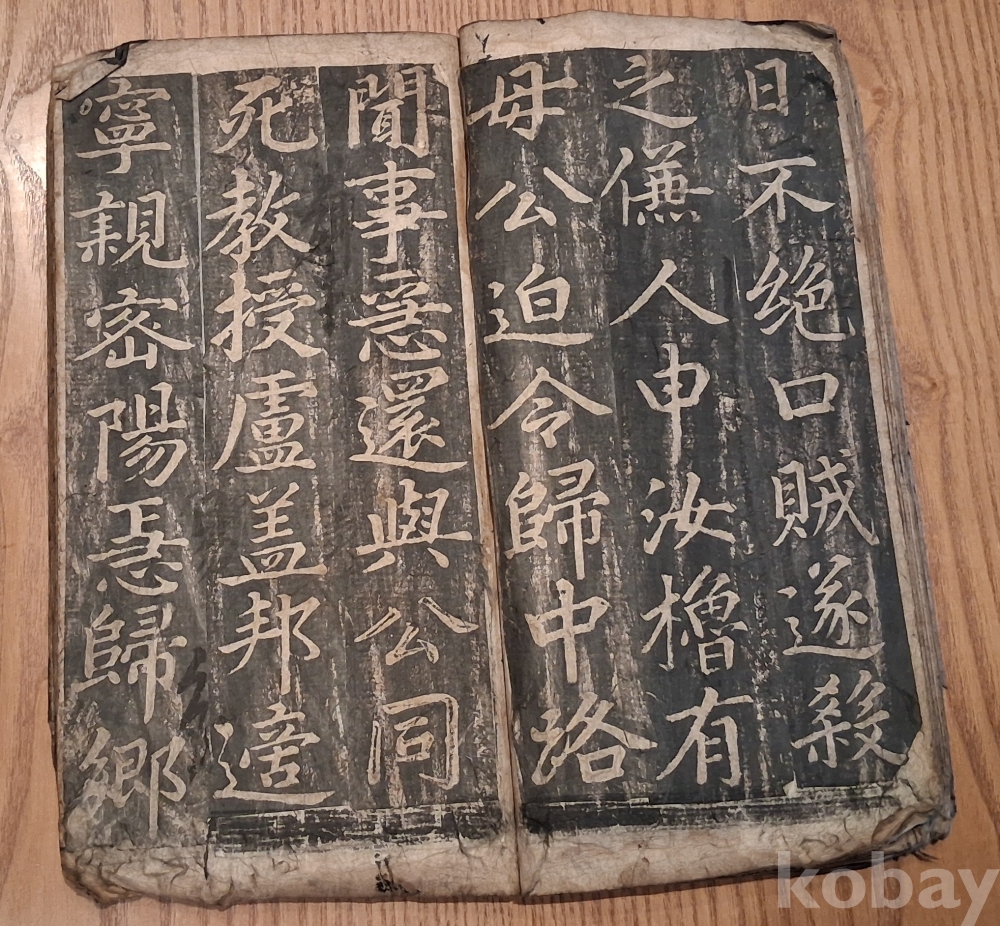 日不絶口賊遂殺
之傔人申汝櫓有
母公迫令歸中路
聞事急還與公同
死教授盧盖邦適
寧親密陽急歸鄉
kobay